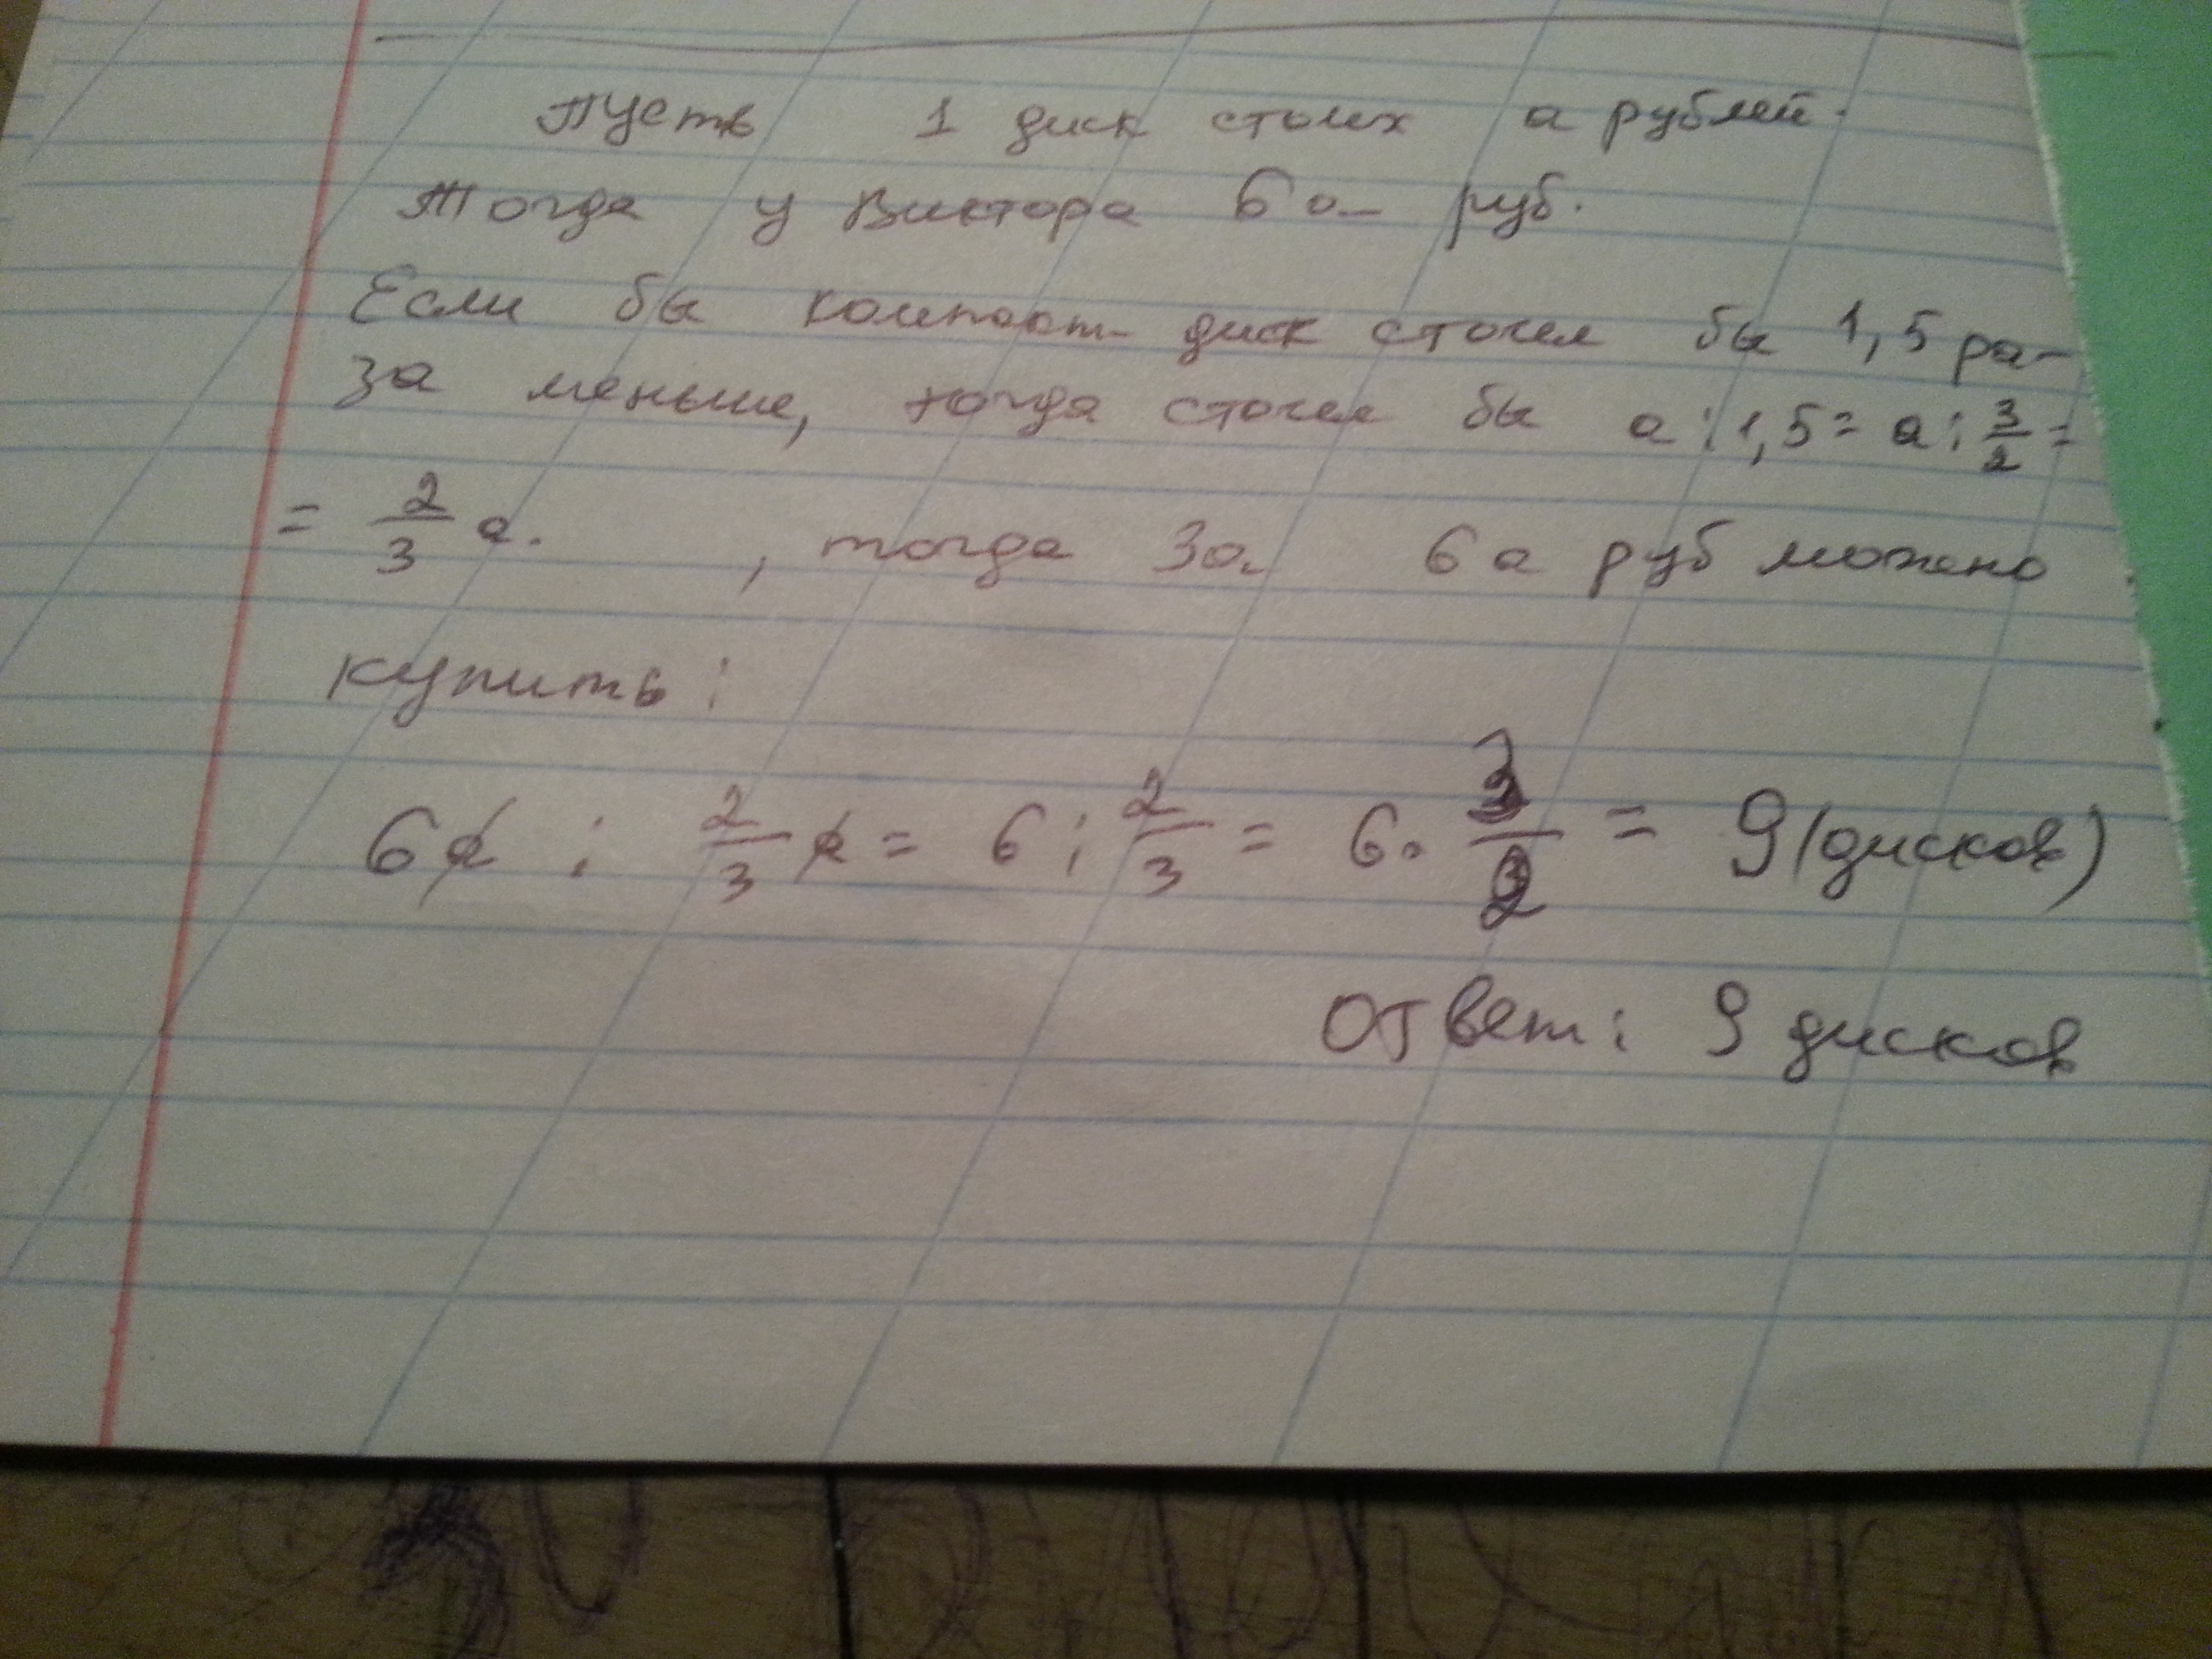 Пусть 1 диск стоит а рублей.
Тогда у Виктора 6а руб.
Если бы компакт-диск стоил бы 1,5 ра-
за меньше, тогда стоил бы а : 1,5 = а : 3/2 =
= 2/3 а. , тогда за 6а руб можно
купить :
6а : 2/3 а = 6 : 2/3 = 6 · 3/2 = 9 (дисков)
Ответ : 9 дисков